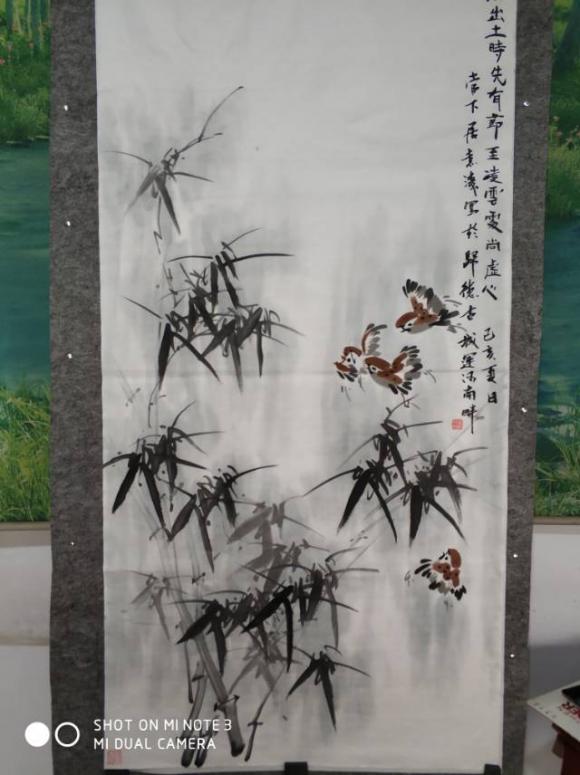 出土時先有節至凌雲處尚虛心 己亥夏日
下居袁寫於歸德古城運河南畔
SHOT ON MI NOTE 3
MI DUAL CAMERA